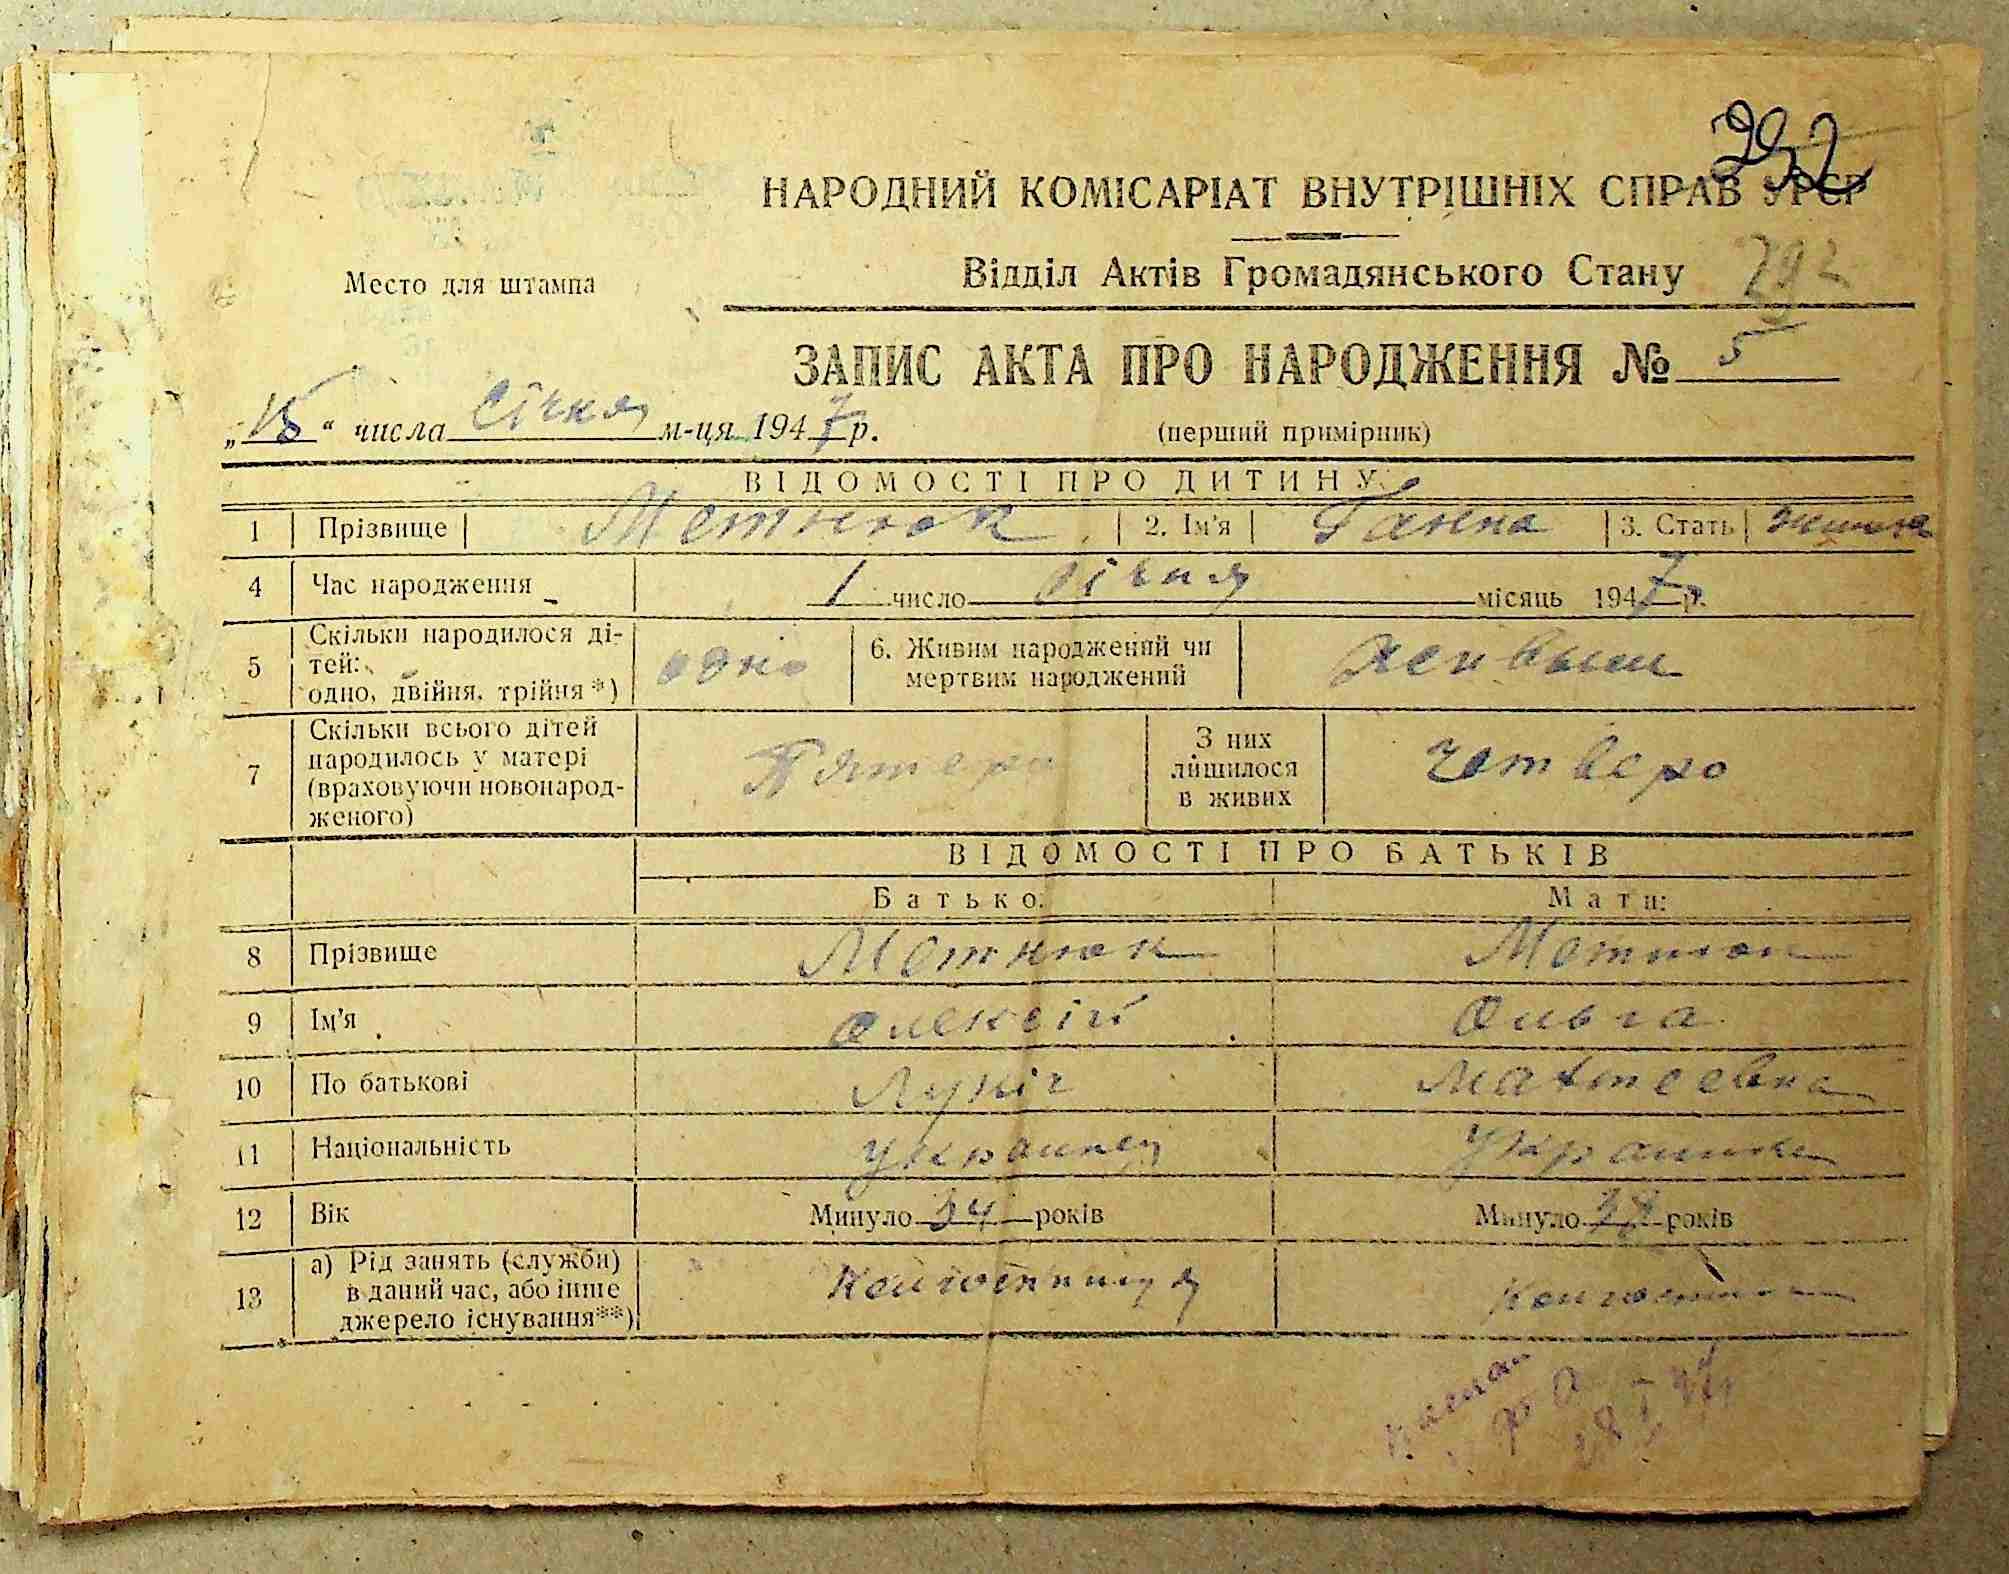 292
НАРОДНИЙ КОМІСАРІАТ ВНУТРІШНІХ СПРАВ УРСР
Место для штампа
Відділ Актів Громадянського Стану 292
ЗАПИС АКТА ПРО НАРОДЖЕННЯ № 5
„ “ числа Січня м-ця 1947 р.
(перший примірник)
ВІДОМОСТІ ПРО ДИТИНУ
1 Прізвище Метнюк 2. Ім'я Ганна 3. Стать
4 Час народження 1 число січня місяць 1947 р.
5 Скільки народилося ді-
тей:
одно, двійня, трійня*) одно
6. Живим народжений чи
мертвим народжений
7 Скільки всього дітей
народилось у матері
(враховуючи новонарод-
женого) Пятеро
З них
лишилося
в живих четверо
ВІДОМОСТІ ПРО БАТЬКІВ
Батько: Мати:
8 Прізвище Метнюк Метнюк
9 Ім'я Олексій Ольга
10 По батькові Лукіч Матвеевна
11 Національність Украинец Украинка
12 Вік Минуло 34 років Минуло 38 років
13 а) Рід занять (служби)
в даний час, або інше
джерело існування**)